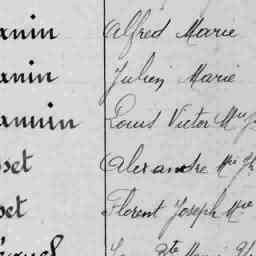 anin Alfred Marie
anin Julien Marie
annin Louis Victor Mie
sset Alexandre Mie
set Florent Joseph Mie